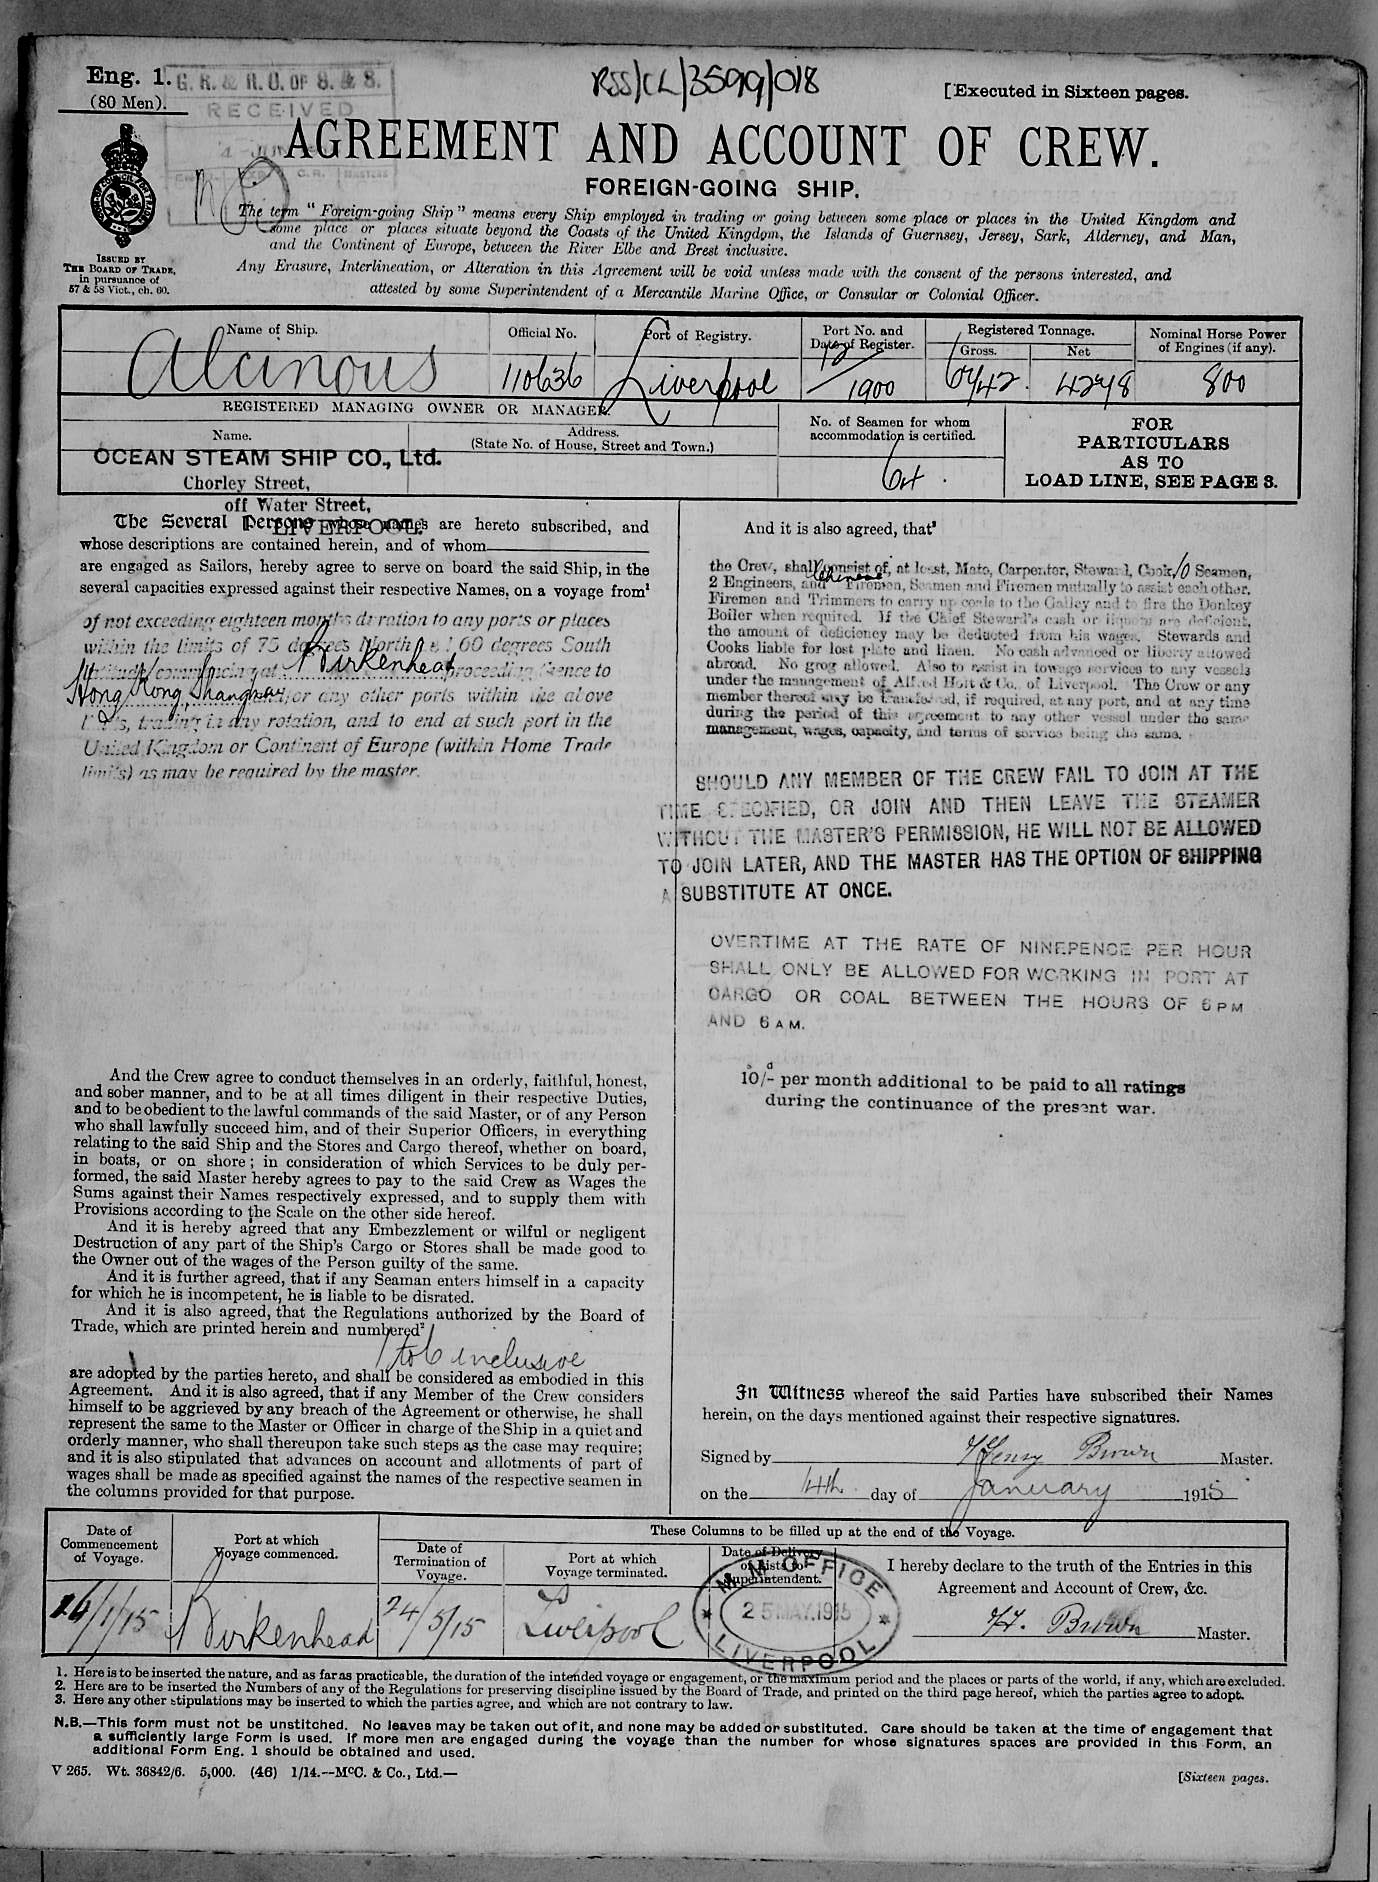 Eng. 1.
(80 Men).
G. R. & R. O. OF S. & S.
RECEIVED
RSS/CL/3599/018
[Executed in Sixteen pages.
AGREEMENT AND ACCOUNT OF CREW.
FOREIGN-GOING SHIP.
The term "Foreign-going Ship" means every Ship employed in trading or going between some place or places in the United Kingdom and
some place or places situate beyond the Coasts of the United Kingdom, the Islands of Guernsey, Jersey, Sark, Alderney, and Man,
and the Continent of Europe, between the River Elbe and Brest inclusive.
Any Erasure, Interlineation, or Alteration in this Agreement will be void unless made with the consent of the persons interested, and
attested by some Superintendent of a Mercantile Marine Office, or Consular or Colonial Officer.
ISSUED BY
THE BOARD OF TRADE,
in pursuance of
57 & 58 Vict., ch. 60.
Name of Ship.
Official No.
Port of Registry.
Port No. and
Date of Register.
Registered Tonnage.
Gross.
Net
Nominal Horse Power
of Engines (if any).
Alcinous
110636
Liverpool
12/1900
6742.
4278
800
REGISTERED MANAGING OWNER OR MANAGER.
Name.
Address.
(State No. of House, Street and Town.)
No. of Seamen for whom
accommodation is certified.
64.
FOR
PARTICULARS
AS TO
LOAD LINE, SEE PAGE 3.
OCEAN STEAM SHIP CO., Ltd.
Chorley Street,
off Water Street,
LIVERPOOL.
The Several Persons whose names are hereto subscribed, and
whose descriptions are contained herein, and of whom
are engaged as Sailors, hereby agree to serve on board the said Ship, in the
several capacities expressed against their respective Names, on a voyage from¹
of not exceeding eighteen months duration to any ports or places
within the limits of 75 degrees North & 60 degrees South
latitude, commencing at Birkenhead proceeding thence to
Hong Kong, Shanghai or any other ports within the above
limits, trading in any rotation, and to end at such port in the
United Kingdom or Continent of Europe (within Home Trade
limits) as may be required by the master.
And the Crew agree to conduct themselves in an orderly, faithful, honest,
and sober manner, and to be at all times diligent in their respective Duties,
and to be obedient to the lawful commands of the said Master, or of any Person
who shall lawfully succeed him, and of their Superior Officers, in everything
relating to the said Ship and the Stores and Cargo thereof, whether on board,
in boats, or on shore; in consideration of which Services to be duly per-
formed, the said Master hereby agrees to pay to the said Crew as Wages the
Sums against their Names respectively expressed, and to supply them with
Provisions according to the Scale on the other side hereof.
And it is hereby agreed that any Embezzlement or wilful or negligent
Destruction of any part of the Ship's Cargo or Stores shall be made good to
the Owner out of the wages of the Person guilty of the same.
And it is further agreed, that if any Seaman enters himself in a capacity
for which he is incompetent, he is liable to be disrated.
And it is also agreed, that the Regulations authorized by the Board of
Trade, which are printed herein and numbered²
1 to 6 inclusive
are adopted by the parties hereto, and shall be considered as embodied in this
Agreement. And it is also agreed, that if any Member of the Crew considers
himself to be aggrieved by any breach of the Agreement or otherwise, he shall
represent the same to the Master or Officer in charge of the Ship in a quiet and
orderly manner, who shall thereupon take such steps as the case may require;
and it is also stipulated that advances on account and allotments of part of
wages shall be made as specified against the names of the respective seamen in
the columns provided for that purpose.
And it is also agreed, that³
the Crew, shall consist of, at least, Mate, Carpenter, Steward, Cook, 10 Seamen,
2 Engineers, and Chinese Firemen, Seamen and Firemen mutually to assist each other.
Firemen and Trimmers to carry up coals to the Galley and to fire the Donkey
Boiler when required. If the Chief Steward's cash or liquors are deficient,
the amount of deficiency may be deducted from his wages. Stewards and
Cooks liable for lost plate and linen. No cash advanced or liberty allowed
abroad. No grog allowed. Also to assist in towage services to any vessels
under the management of Alfred Holt & Co. of Liverpool. The Crew or any
member thereof may be transferred, if required, at any port, and at any time
during the period of this agreement to any other vessel under the same
management, wages, capacity, and terms of service being the same.
SHOULD ANY MEMBER OF THE CREW FAIL TO JOIN AT THE
TIME SPECIFIED, OR JOIN AND THEN LEAVE THE STEAMER
WITHOUT THE MASTER'S PERMISSION, HE WILL NOT BE ALLOWED
TO JOIN LATER, AND THE MASTER HAS THE OPTION OF SHIPPING
A SUBSTITUTE AT ONCE.
OVERTIME AT THE RATE OF NINEPENCE PER HOUR
SHALL ONLY BE ALLOWED FOR WORKING IN PORT AT
CARGO OR COAL BETWEEN THE HOURS OF 6 PM
AND 6 AM.
10/- per month additional to be paid to all ratings
during the continuance of the present war.
In Witness whereof the said Parties have subscribed their Names
herein, on the days mentioned against their respective signatures.
Signed by Henry Brown Master.
on the 14th day of January 1915
Date of
Commencement
of Voyage.
Port at which
Voyage commenced.
These Columns to be filled up at the end of the Voyage.
Date of
Termination of
Voyage.
Port at which
Voyage terminated.
Date of Delivery
of Lists to
Superintendent.
I hereby declare to the truth of the Entries in this
Agreement and Account of Crew, &c.
16/1/15
Birkenhead
24/5/15
Liverpool
M. M. OFFICE
25 MAY. 1915
LIVERPOOL
H. Brown Master.
1. Here is to be inserted the nature, and as far as practicable, the duration of the intended voyage or engagement, or the maximum period and the places or parts of the world, if any, which are excluded.
2. Here are to be inserted the Numbers of any of the Regulations for preserving discipline issued by the Board of Trade, and printed on the third page hereof, which the parties agree to adopt.
3. Here any other stipulations may be inserted to which the parties agree, and which are not contrary to law.
N.B.—This form must not be unstitched. No leaves may be taken out of it, and none may be added or substituted. Care should be taken at the time of engagement that
a sufficiently large Form is used. If more men are engaged during the voyage than the number for whose signatures spaces are provided in this Form, an
additional Form Eng. 1 should be obtained and used.
V 265. Wt. 36842/6. 5,000. (46) 1/14.—McC. & Co., Ltd.—
[Sixteen pages.